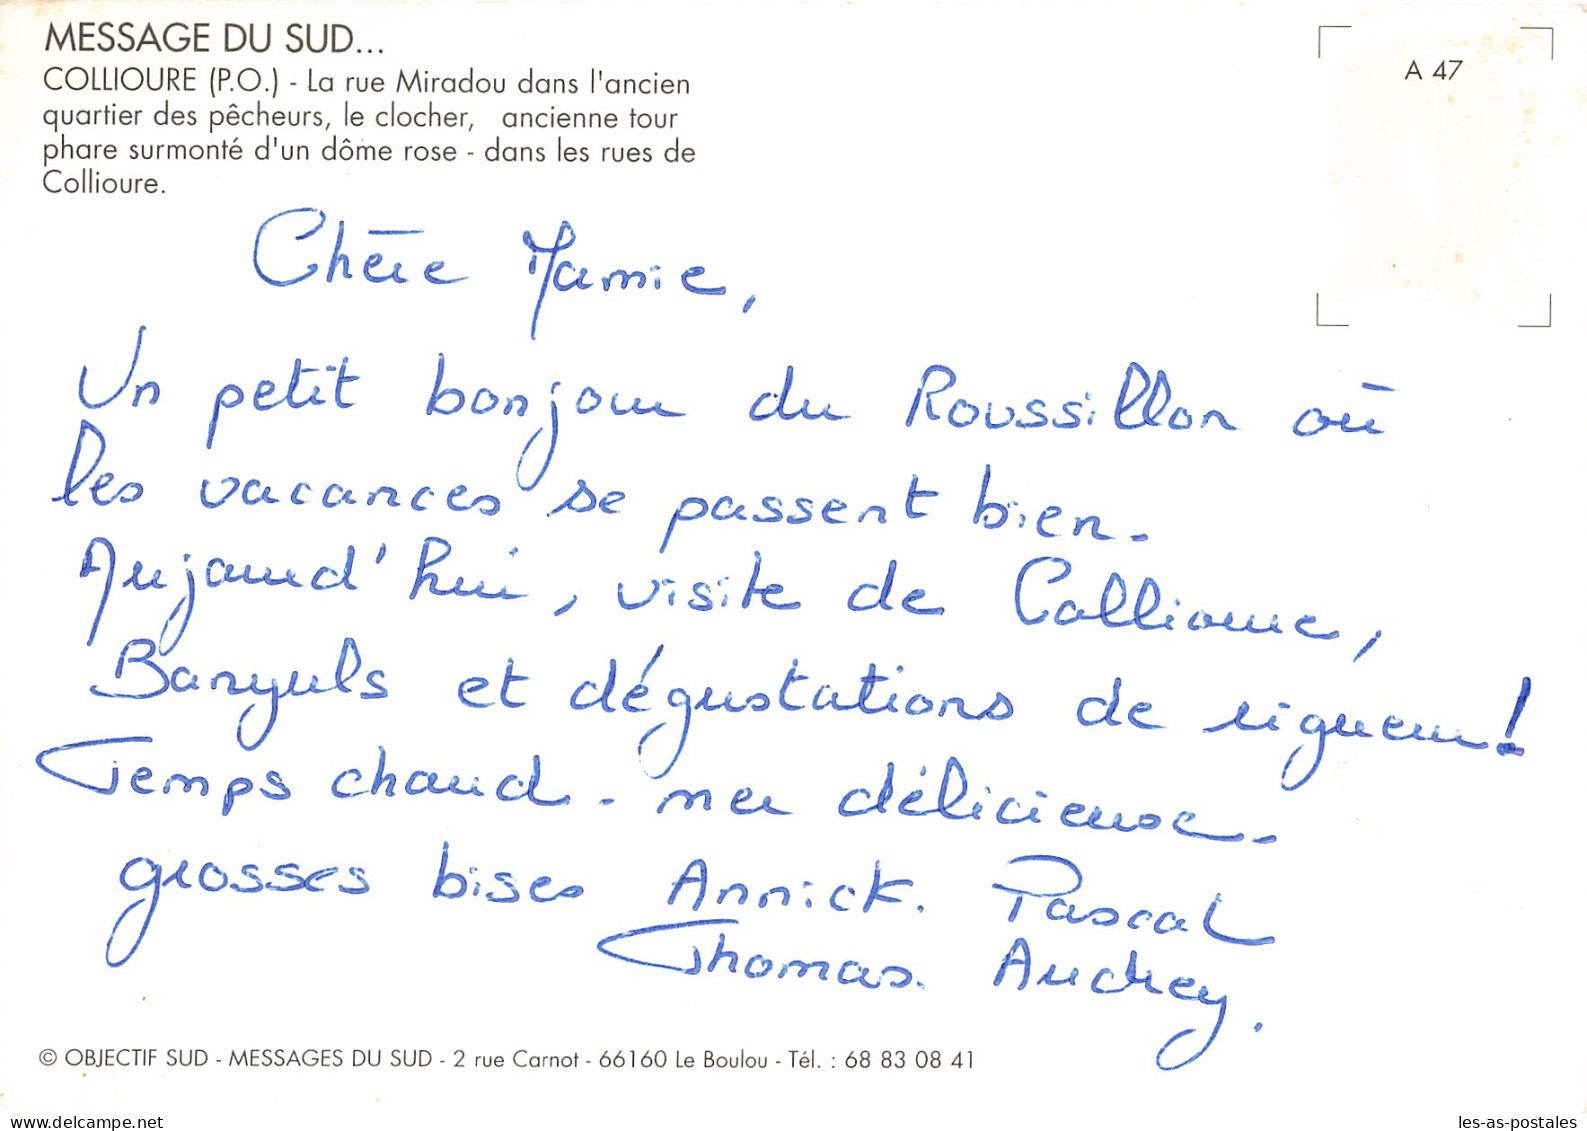 MESSAGE DU SUD...
COLLIOURE (P.O.) - La rue Miradou dans l'ancien
quartier des pêcheurs, le clocher, ancienne tour
phare surmonté d'un dôme rose - dans les rues de
Collioure.
A 47
Chère Mamie,
Un petit bonjour du Roussillon où
les vacances se passent bien.
Aujourd'hui, visite de Collioure,
Banyuls et dégustations de rigueur!
Temps chaud - mer délicieuse -
grosses bises Annick. Pascal
Thomas. Audrey.
© OBJECTIF SUD - MESSAGES DU SUD - 2 rue Carnot - 66160 Le Boulou - Tél. : 68 83 08 41
delcampe.net
les-as-postales